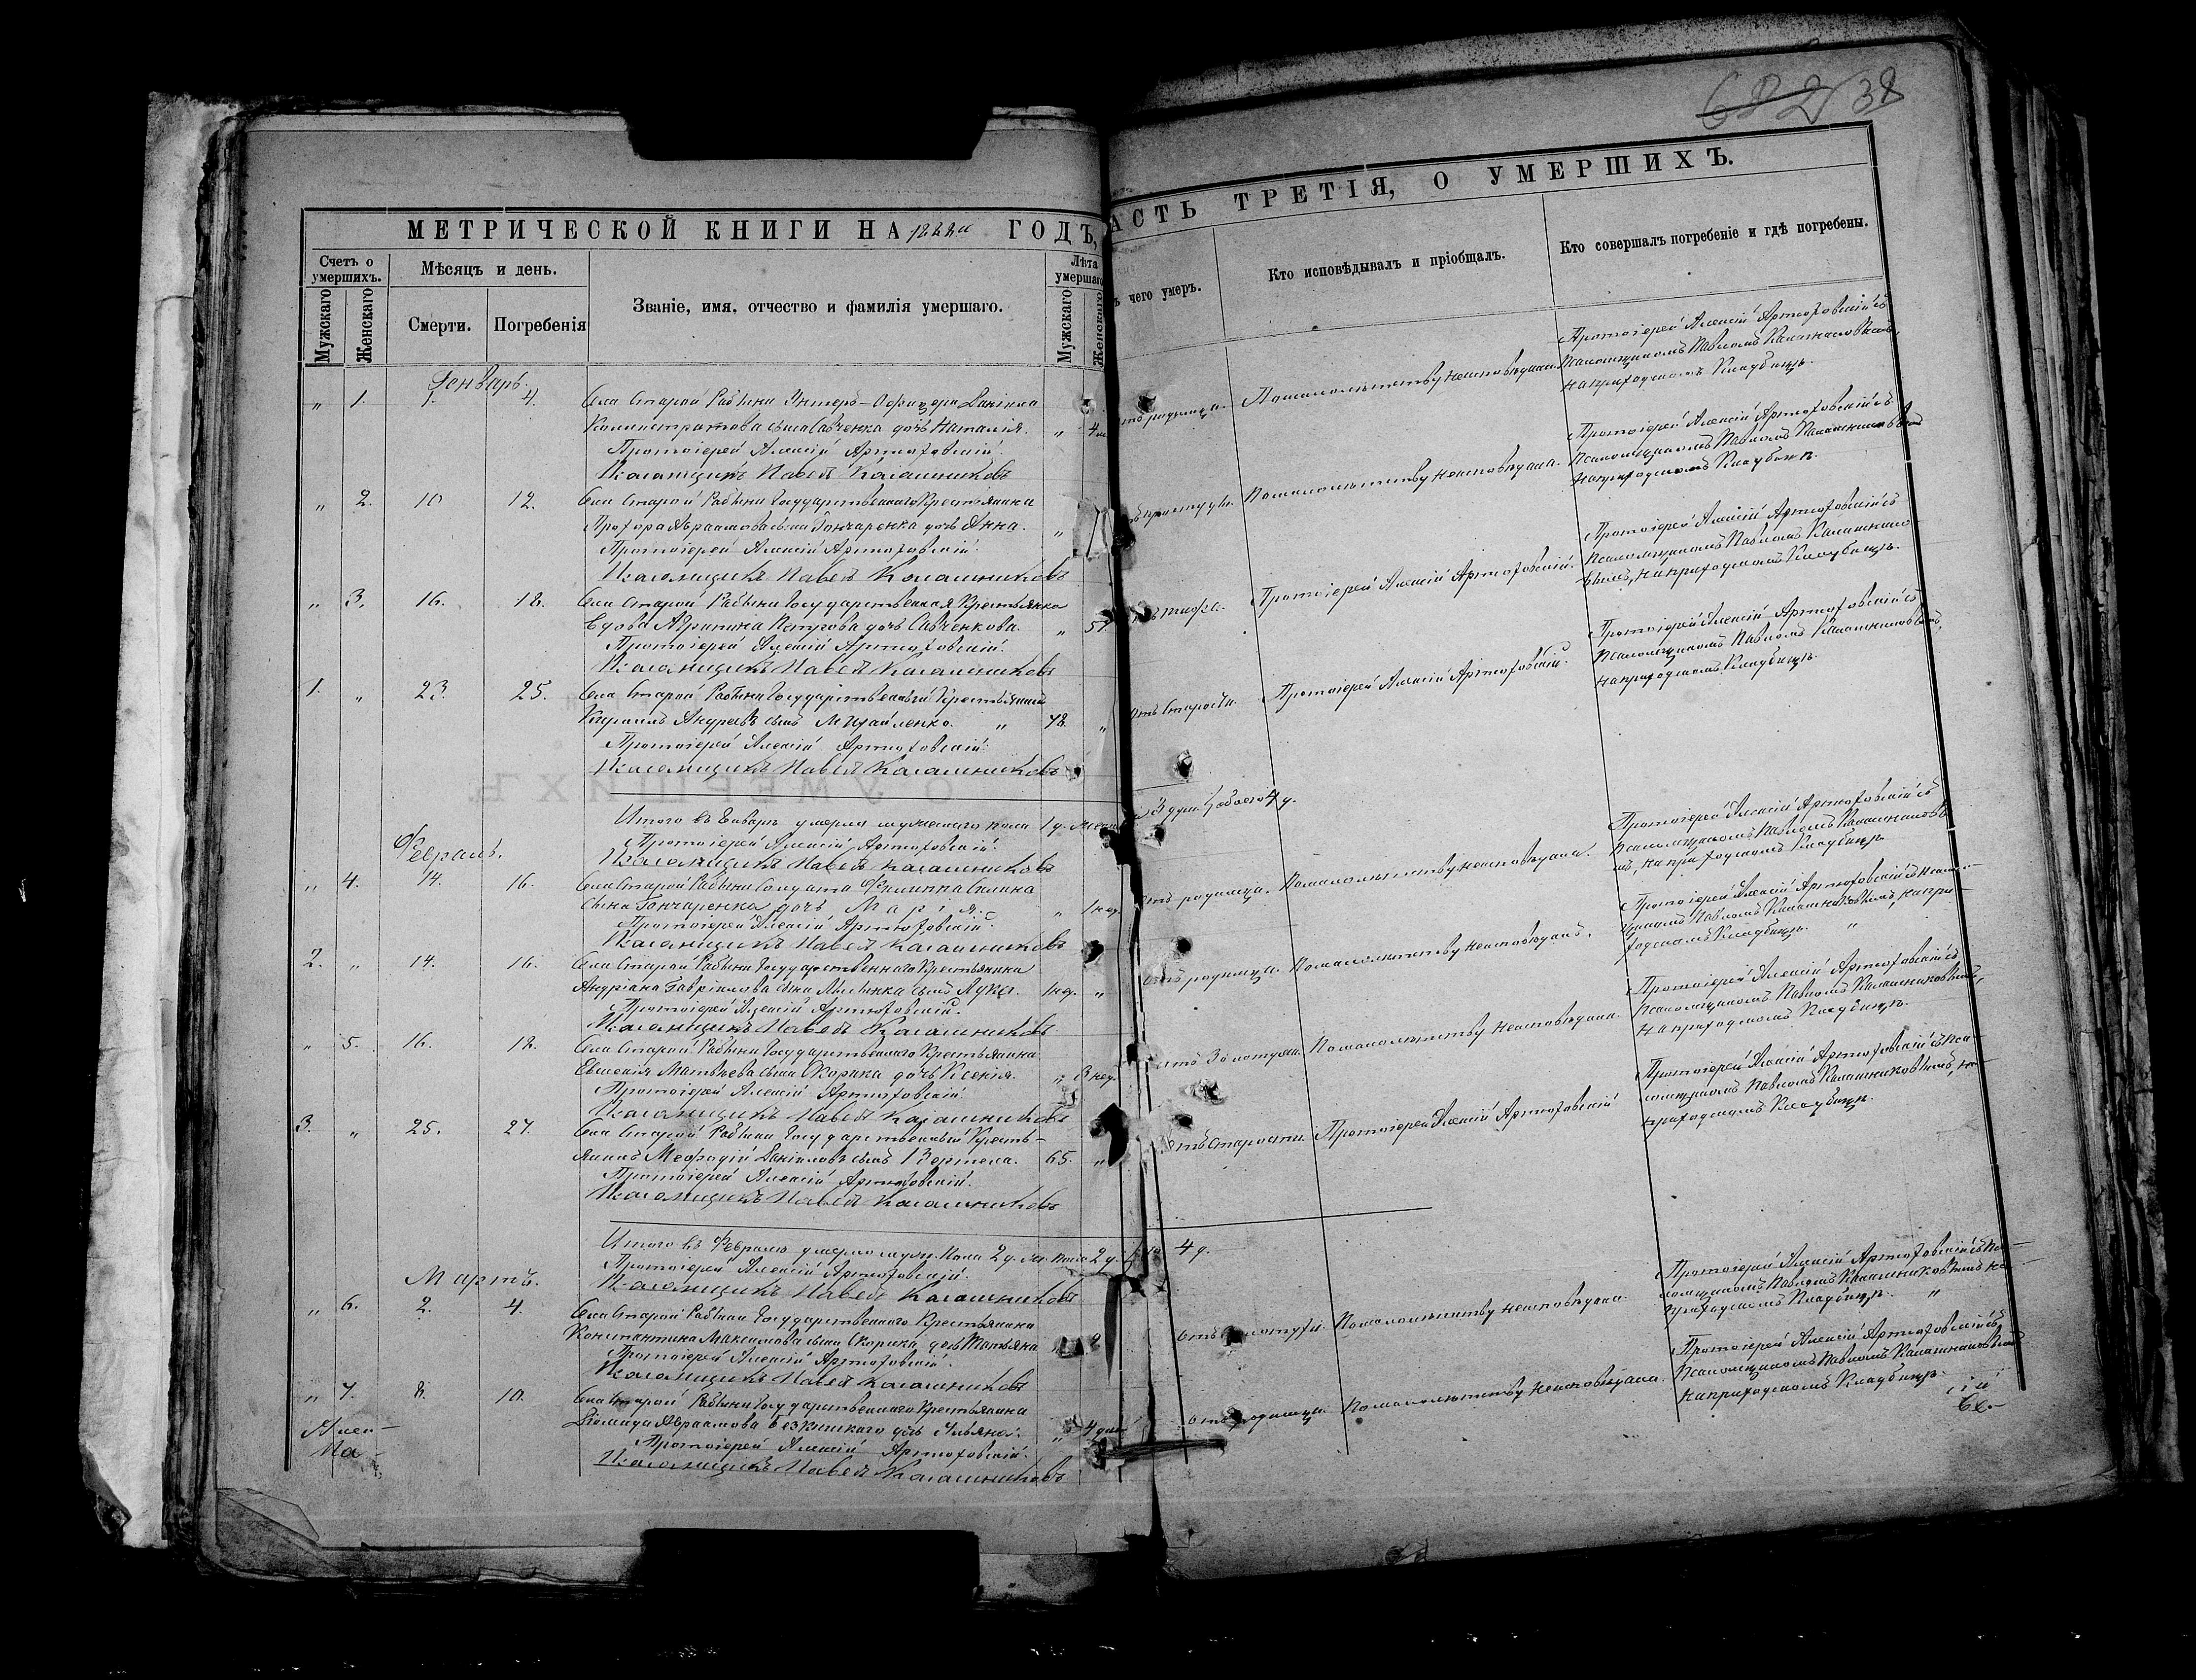 682 38
МЕТРИЧЕСКОЙ КНИГИ НА 1888й ГОДЪ,
АСТЬ ТРЕТІЯ, О УМЕРШИХЪ.
Счетъ о умершихъ.
Мѣсяцъ и день.
Званіе, имя, отчество и фамилія умершаго.
Лѣта умершаго
Мужскаго
Женскаго
Смерти.
Погребенія
Мужскаго
Женскаго
ъ чего умеръ.
Кто исповѣдывалъ и пріобщалъ.
Кто совершалъ погребеніе и гдѣ погребены.
Генварь.
„ 1. 1. 4. Села Старой Рабыни Унтеръ-Офицера Даніила
Калистратова сына Савченка дочь Наталія. „ 4 м
Протоіерей Алексій Артюховскій.
Псаломщикъ Павелъ Калашниковъ
„ 2. 10 12. Села Старой Рабыни Государственнаго Крестьянина
Прохора Авраамова сына Гончаренка дочь Анна. „
Протоіерей Алексій Артюховскій.
Псаломщикъ Павелъ Калашниковъ
„ 3. 16. 18. Села Старой Рабыни Государственная Крестьянка
Вдова Петрова дочь Савченкова. „
Протоіерей Алексій Артюховскій.
Псаломщикъ Павелъ Калашниковъ
1. „ 23. 25. Села Старой Рабыни Государственный Крестьянинъ
Кириллъ Андреевъ сынъ Михайленко. „ 78. „
Протоіерей Алексій Артюховскій.
Псаломщикъ Павелъ Калашниковъ
Итого въ Январѣ умерло мужескаго пола 1 д.
Протоіерей Алексій Артюховскій.
Псаломщикъ Павелъ Калашниковъ
Февраль.
„ 4. 14. 16. Села Старой Рабыни Солдата Филиппа
Сына Гончаренка дочь Марія. „ 1 нед.
Протоіерей Алексій Артюховскій.
Псаломщикъ Павелъ Калашниковъ
2. „ 14. 16. Села Старой Рабыни Государственнаго Крестьянина
Андріана Гавріилова сына сынъ Лука. 1 нед. „
Протоіерей Алексій Артюховскій.
Псаломщикъ Павелъ Калашниковъ
„ 5. 16. 18. Села Старой Рабыни Государственнаго Крестьянина
Евменія Матвѣева сына Скорика дочь Ксенія. „ 3 нед.
Протоіерей Алексій Артюховскій.
Псаломщикъ Павелъ Калашниковъ
3. „ 25. 27. Села Старой Рабыни Государственный Кресть-
янинъ Меѳодій Даніиловъ сынъ Вертела. 65. „
Протоіерей Алексій Артюховскій.
Псаломщикъ Павелъ Калашниковъ
Итого въ Февралѣ умерло муж. пола 2 д. жен. пола 2 д.
Протоіерей Алексій Артюховскій.
Псаломщикъ Павелъ Калашниковъ
Мартъ.
„ 6. 2. 4. Села Старой Рабыни Государственнаго Крестьянина
Константина Максимова сына Скорика дочь Татьяна
Протоіерей Алексій Артюховскій.
Псаломщикъ Павелъ Калашниковъ
„ 7. 8. 10. Села Старой Рабыни Государственнаго Крестьянина
Авраамова дочь Ульяна. „ 4
Протоіерей Алексій Артюховскій.
Псаломщикъ Павелъ Калашниковъ
родимца. По малолѣтству неисповѣдана.
Протоіерей Алексій Артюховскій съ
Псаломщикомъ Павломъ Калашниковымъ,
на приходскомъ Кладбищѣ.
простуды. По малолѣтству неисповѣдана.
Протоіерей Алексій Артюховскій съ
Псаломщикомъ Павломъ Калашниковымъ
на приходскомъ Кладбищѣ.
тифа. Протоіерей Алексій Артюховскій.
Протоіерей Алексій Артюховскій съ
Псаломщикомъ Павломъ Калашнико-
вымъ, на приходскомъ Кладбищѣ.
отъ Старости. Протоіерей Алексій Артюховскій.
Протоіерей Алексій Артюховскій съ
Псаломщикомъ Павломъ Калашниковымъ,
на приходскомъ Кладбищѣ.
3 души обоего 4 д.
отъ родимца. По малолѣтству неисповѣдана.
Протоіерей Алексій Артюховскій съ
Псаломщикомъ Павломъ Калашниковы-
мъ, на приходскомъ Кладбищѣ
отъ родимца. По малолѣтству неисповѣданъ.
Протоіерей Алексій Артюховскій съ Псалом-
щикомъ Павломъ Калашниковымъ, на при-
ходскомъ Кладбищѣ. „
отъ Золотухи. По малолѣтству неисповѣдана.
Протоіерей Алексій Артюховскій съ
Псаломщикомъ Павломъ Калашниковымъ,
на приходскомъ Кладбищѣ.
отъ старости. Протоіерей Алексій Артюховскій
Протоіерей Алексій Артюховскій съ Пса-
ломщикомъ Павломъ Калашниковымъ, на
приходскомъ Кладбищѣ.
4 д.
отъ золотухи. По малолѣтству неисповѣдана.
Протоіерей Алексій Артюховскій съ Пса-
ломщикомъ Павломъ Калашниковымъ на
приходскомъ Кладбищѣ. „
отъ родимца. По малолѣтству неисповѣдана.
Протоіерей Алексій Артюховскій съ
Псаломщикомъ Павломъ Калашниковымъ
на приходскомъ Кладбищѣ.